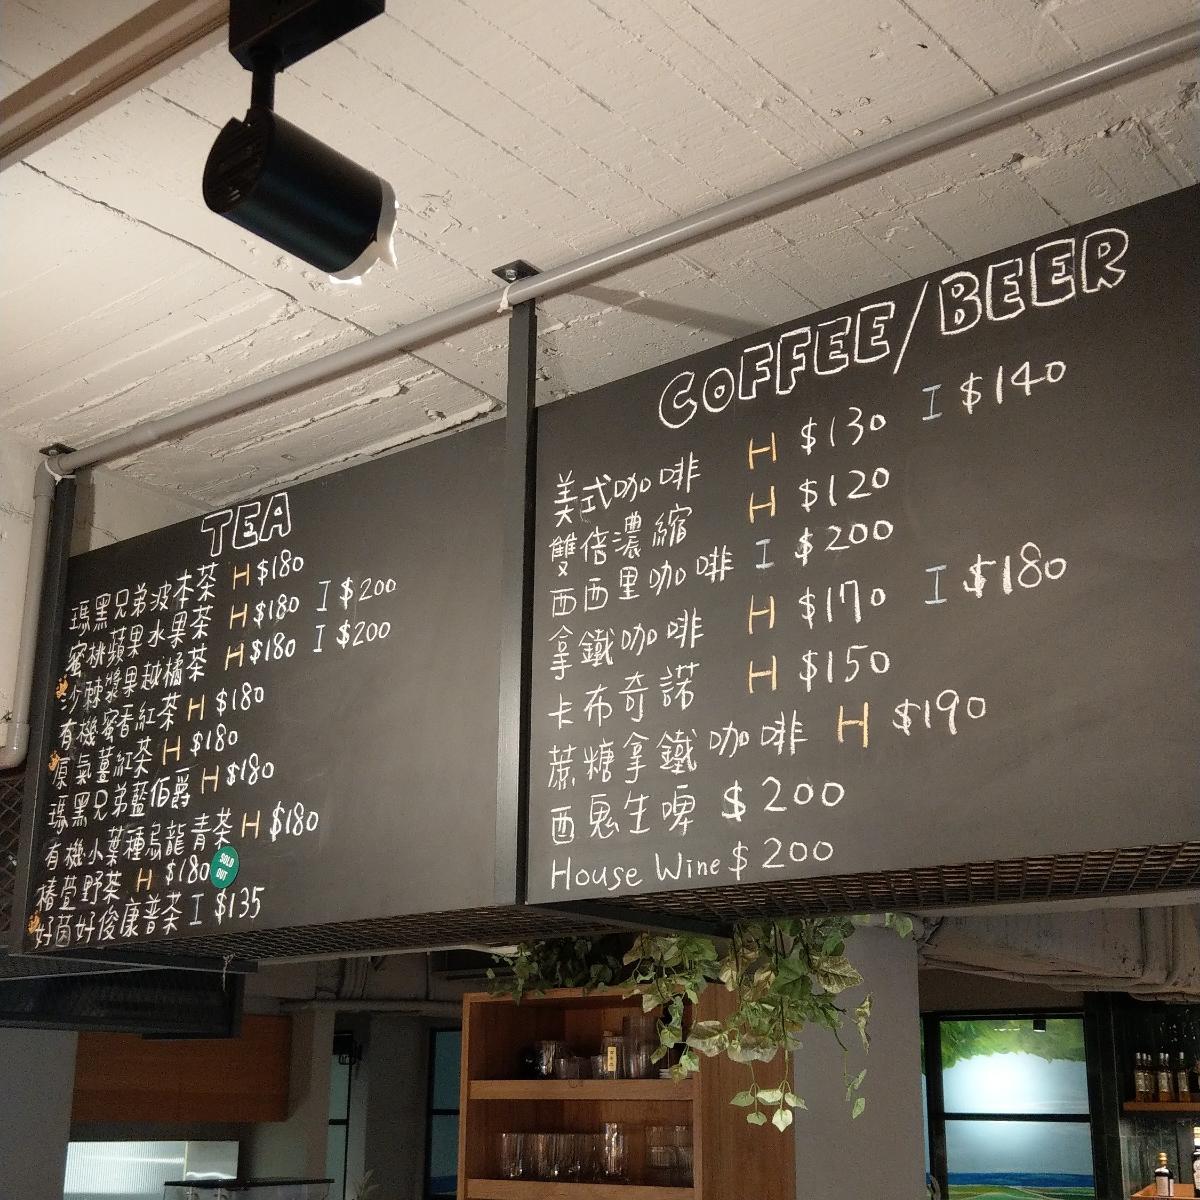 TEA
瑪黑兄弟波本茶 H $180
蜜桃蘋果水果茶 H $180 I $200
沙棘漿果越橘茶 H $180 I $200
有機蜜香紅茶 H $180
原氣薑紅茶 H $180
瑪黑兄弟藍伯爵 H $180
有機小葉種烏龍青茶 H $180
椿萱野茶 H $180 SOLD OUT
好茵好俊康普茶 I $135
COFFEE/BEER
美式咖啡 H $130 I $140
雙倍濃縮 H $120
西西里咖啡 I $200
拿鐵咖啡 H $170 I $180
卡布奇諾 H $150
蔗糖拿鐵咖啡 H $190
酉鬼生啤 $200
House Wine $200